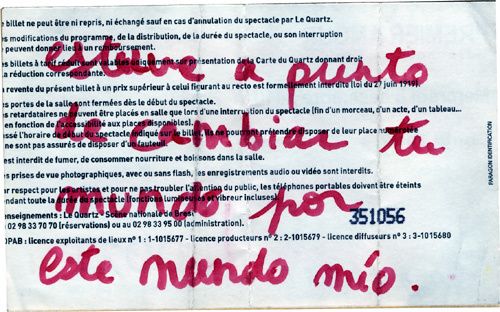 e billet ne peut être ni repris, ni échangé sauf en cas d'annulation du spectacle par Le Quartz.
es modifications du programme, de la distribution, de la durée du spectacle, ou son interruption
e peuvent donner lieu à un remboursement.
estuve a punto
es billets à tarif réduit sur présentation de la Carte du Quartz donnant droit
la réduction correspondante.
revente du présent billet à un prix supérieur à celui figurant au recto est formellement interdite (loi du 27 juin 1919).
es portes de la salle sont fermées dès le début du spectacle.
es retardataires ne peuvent être placés en salle que lors d'une interruption du spectacle (fin d'un morceau, d'un acte, d'un tableau...
en fonction de l'accessibilité aux places disponibles).
de cambiar tu
assé l'horaire de début du spectacle indiqué sur le billet, disposer de leur place numérotée
e sont pas assurés de disposer d'un fauteuil.
est interdit de fumer, de consommer nourriture et boissons dans la salle.
es prises de vue photographiques, avec ou sans flash, les enregistrements audio ou vidéo sont interdits.
ar respect pour les artistes et pour ne pas troubler l'attention du public, les téléphones portables doivent être éteints
endant toute la durée du spectacle (fonction lumineuse et vibreur incluses).
mundo por
351056
enseignements : Le Quartz - Scène nationale de Brest
l 02 98 33 70 70 (réservations) ou 02 98 33 95 00 (administration).
OPAB : licence exploitants de lieux n° 1 : 1-1015677 - licence producteurs n° 2 : 2-1015679 - licence diffuseurs n° 3 : 3-1015680
este mundo mío.
PARAGON IDENTIFICATION